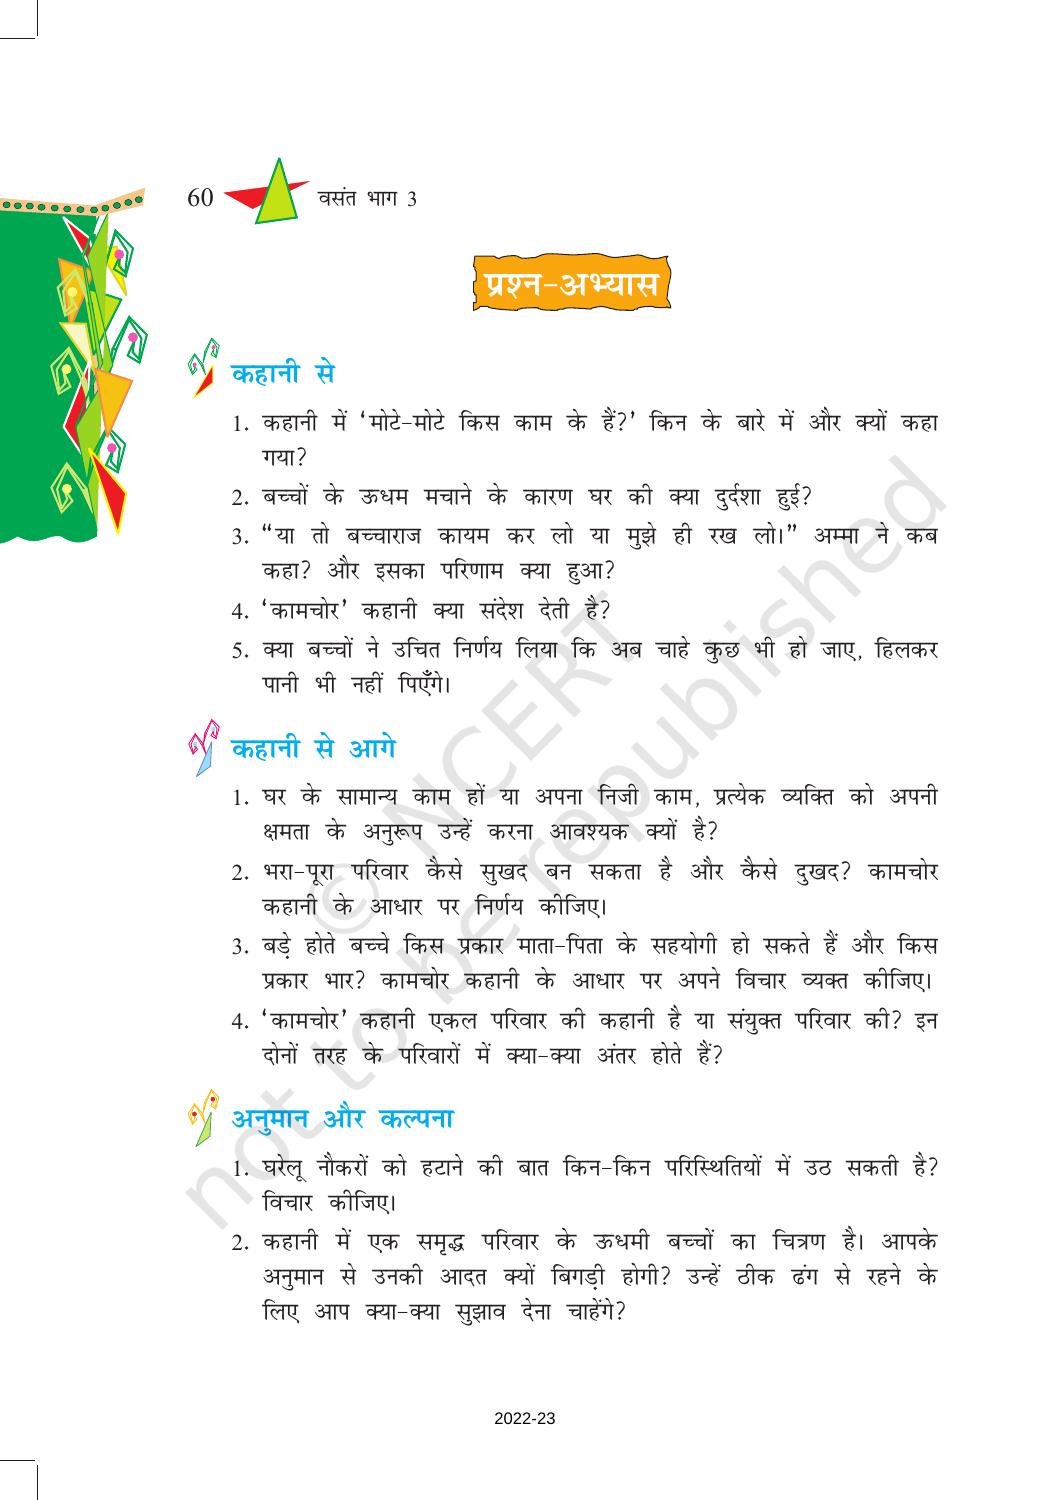 60 वसंत भाग 3
प्रश्न-अभ्यास
कहानी से
1. कहानी में ‘मोटे-मोटे किस काम के हैं?’ किन के बारे में और क्यों कहा
गया?
2. बच्चों के ऊधम मचाने के कारण घर की क्या दुर्दशा हुई?
3. “या तो बच्चाराज कायम कर लो या मुझे ही रख लो।” अम्मा ने कब
कहा? और इसका परिणाम क्या हुआ?
4. ‘कामचोर’ कहानी क्या संदेश देती है?
5. क्या बच्चों ने उचित निर्णय लिया कि अब चाहे कुछ भी हो जाए, हिलकर
पानी भी नहीं पिएँगे।
कहानी से आगे
1. घर के सामान्य काम हों या अपना निजी काम, प्रत्येक व्यक्ति को अपनी
क्षमता के अनुरूप उन्हें करना आवश्यक क्यों है?
2. भरा-पूरा परिवार कैसे सुखद बन सकता है और कैसे दुखद? कामचोर
कहानी के आधार पर निर्णय कीजिए।
3. बड़े होते बच्चे किस प्रकार माता-पिता के सहयोगी हो सकते हैं और किस
प्रकार भार? कामचोर कहानी के आधार पर अपने विचार व्यक्त कीजिए।
4. ‘कामचोर’ कहानी एकल परिवार की कहानी है या संयुक्त परिवार की? इन
दोनों तरह के परिवारों में क्या-क्या अंतर होते हैं?
अनुमान और कल्पना
1. घरेलू नौकरों को हटाने की बात किन-किन परिस्थितियों में उठ सकती है?
विचार कीजिए।
2. कहानी में एक समृद्ध परिवार के ऊधमी बच्चों का चित्रण है। आपके
अनुमान से उनकी आदत क्यों बिगड़ी होगी? उन्हें ठीक ढंग से रहने के
लिए आप क्या-क्या सुझाव देना चाहेंगे?
© NCERT
not to be republished
2022-23